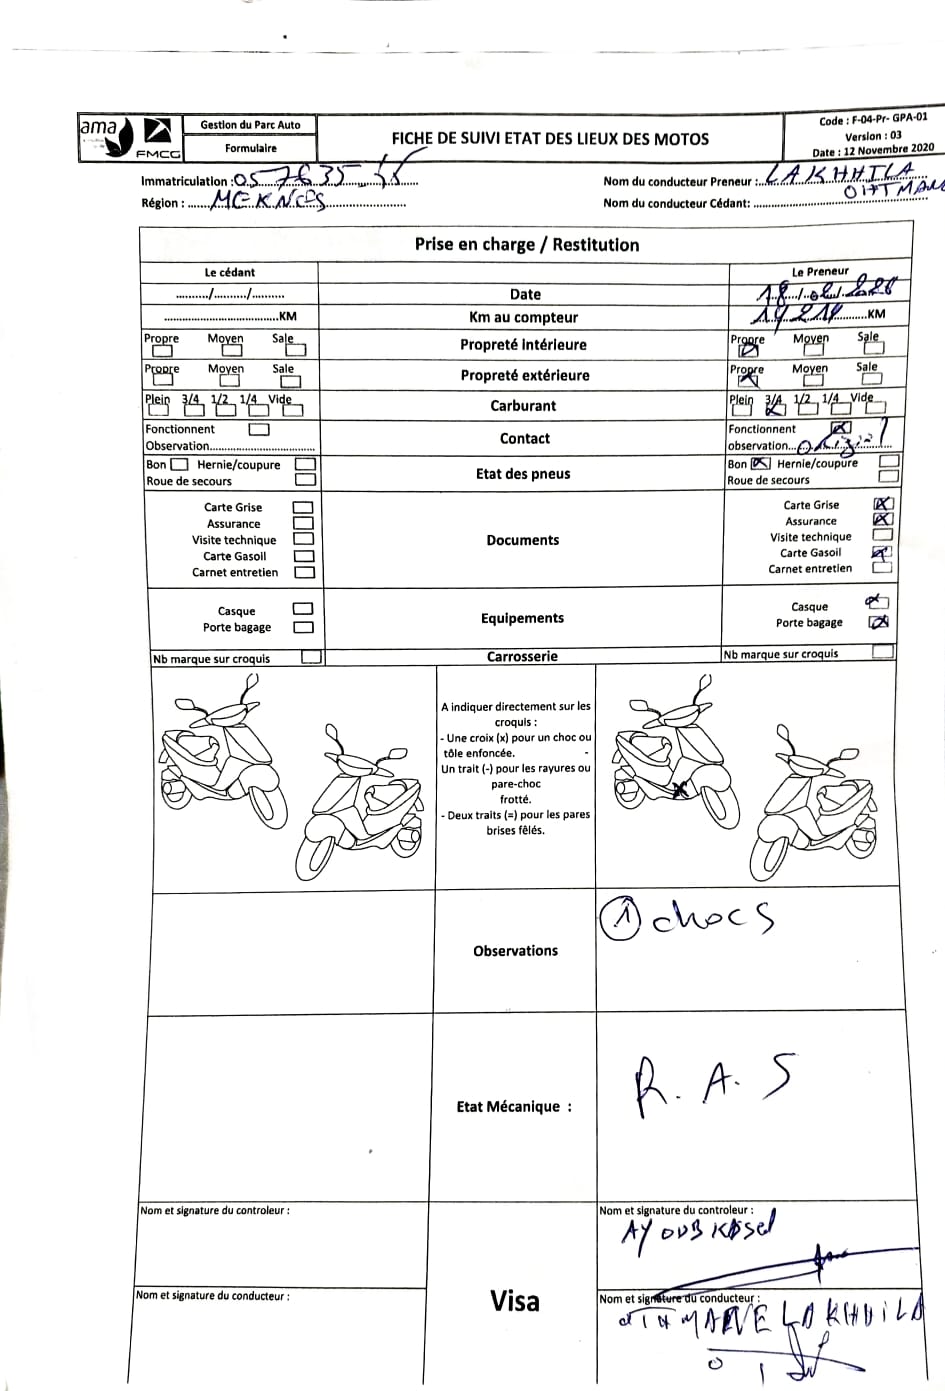 ama
FMCG
Gestion du Parc Auto
Formulaire
FICHE DE SUIVI ETAT DES LIEUX DES MOTOS
Code : F-04-Pr- GPA-01
Version : 03
Date : 12 Novembre 2020
Immatriculation :057635
Nom du conducteur Preneur :LAKHHILA
OIHTMANE
Région : MEKNES
Nom du conducteur Cédant:
Prise en charge / Restitution
Le cédant
Le Preneur
........../........../..........
Date
18/02/
KM
Km au compteur
19214 KM
Propre Moyen Sale
Propreté Intérieure
Propre Moyen Sale
Propre Moyen Sale
Propreté extérieure
Propre Moyen Sale
Plein 3/4 1/2 1/4 Vide
Carburant
Plein 3/4 1/2 1/4 Vide
Fonctionnent
Observation
Contact
Fonctionnent
observation
Bon Hernie/coupure
Roue de secours
Etat des pneus
Bon Hernie/coupure
Roue de secours
Carte Grise
Assurance
Visite technique
Carte Gasoil
Carnet entretien
Documents
Carte Grise
Assurance
Visite technique
Carte Gasoil
Carnet entretien
Casque
Porte bagage
Equipements
Casque
Porte bagage
Nb marque sur croquis
Carrosserie
Nb marque sur croquis
A indiquer directement sur les
croquis :
- Une croix (x) pour un choc ou
tôle enfoncée. -
Un trait (-) pour les rayures ou
pare-choc
frotté.
- Deux traits (=) pour les pares
brises fêlés.
Observations
1 chocs
Etat Mécanique :
R.A.S
Nom et signature du controleur :
Nom et signature du controleur :
AYOUB
Visa
Nom et signature du conducteur :
Nom et signature du conducteur :